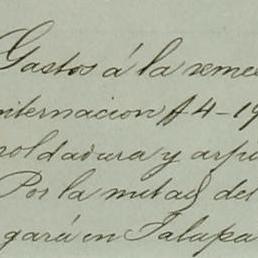 Gastos á la reme
nternacion #4-19
oldadura y arpi
Por la mitad del
gará en Jalapa